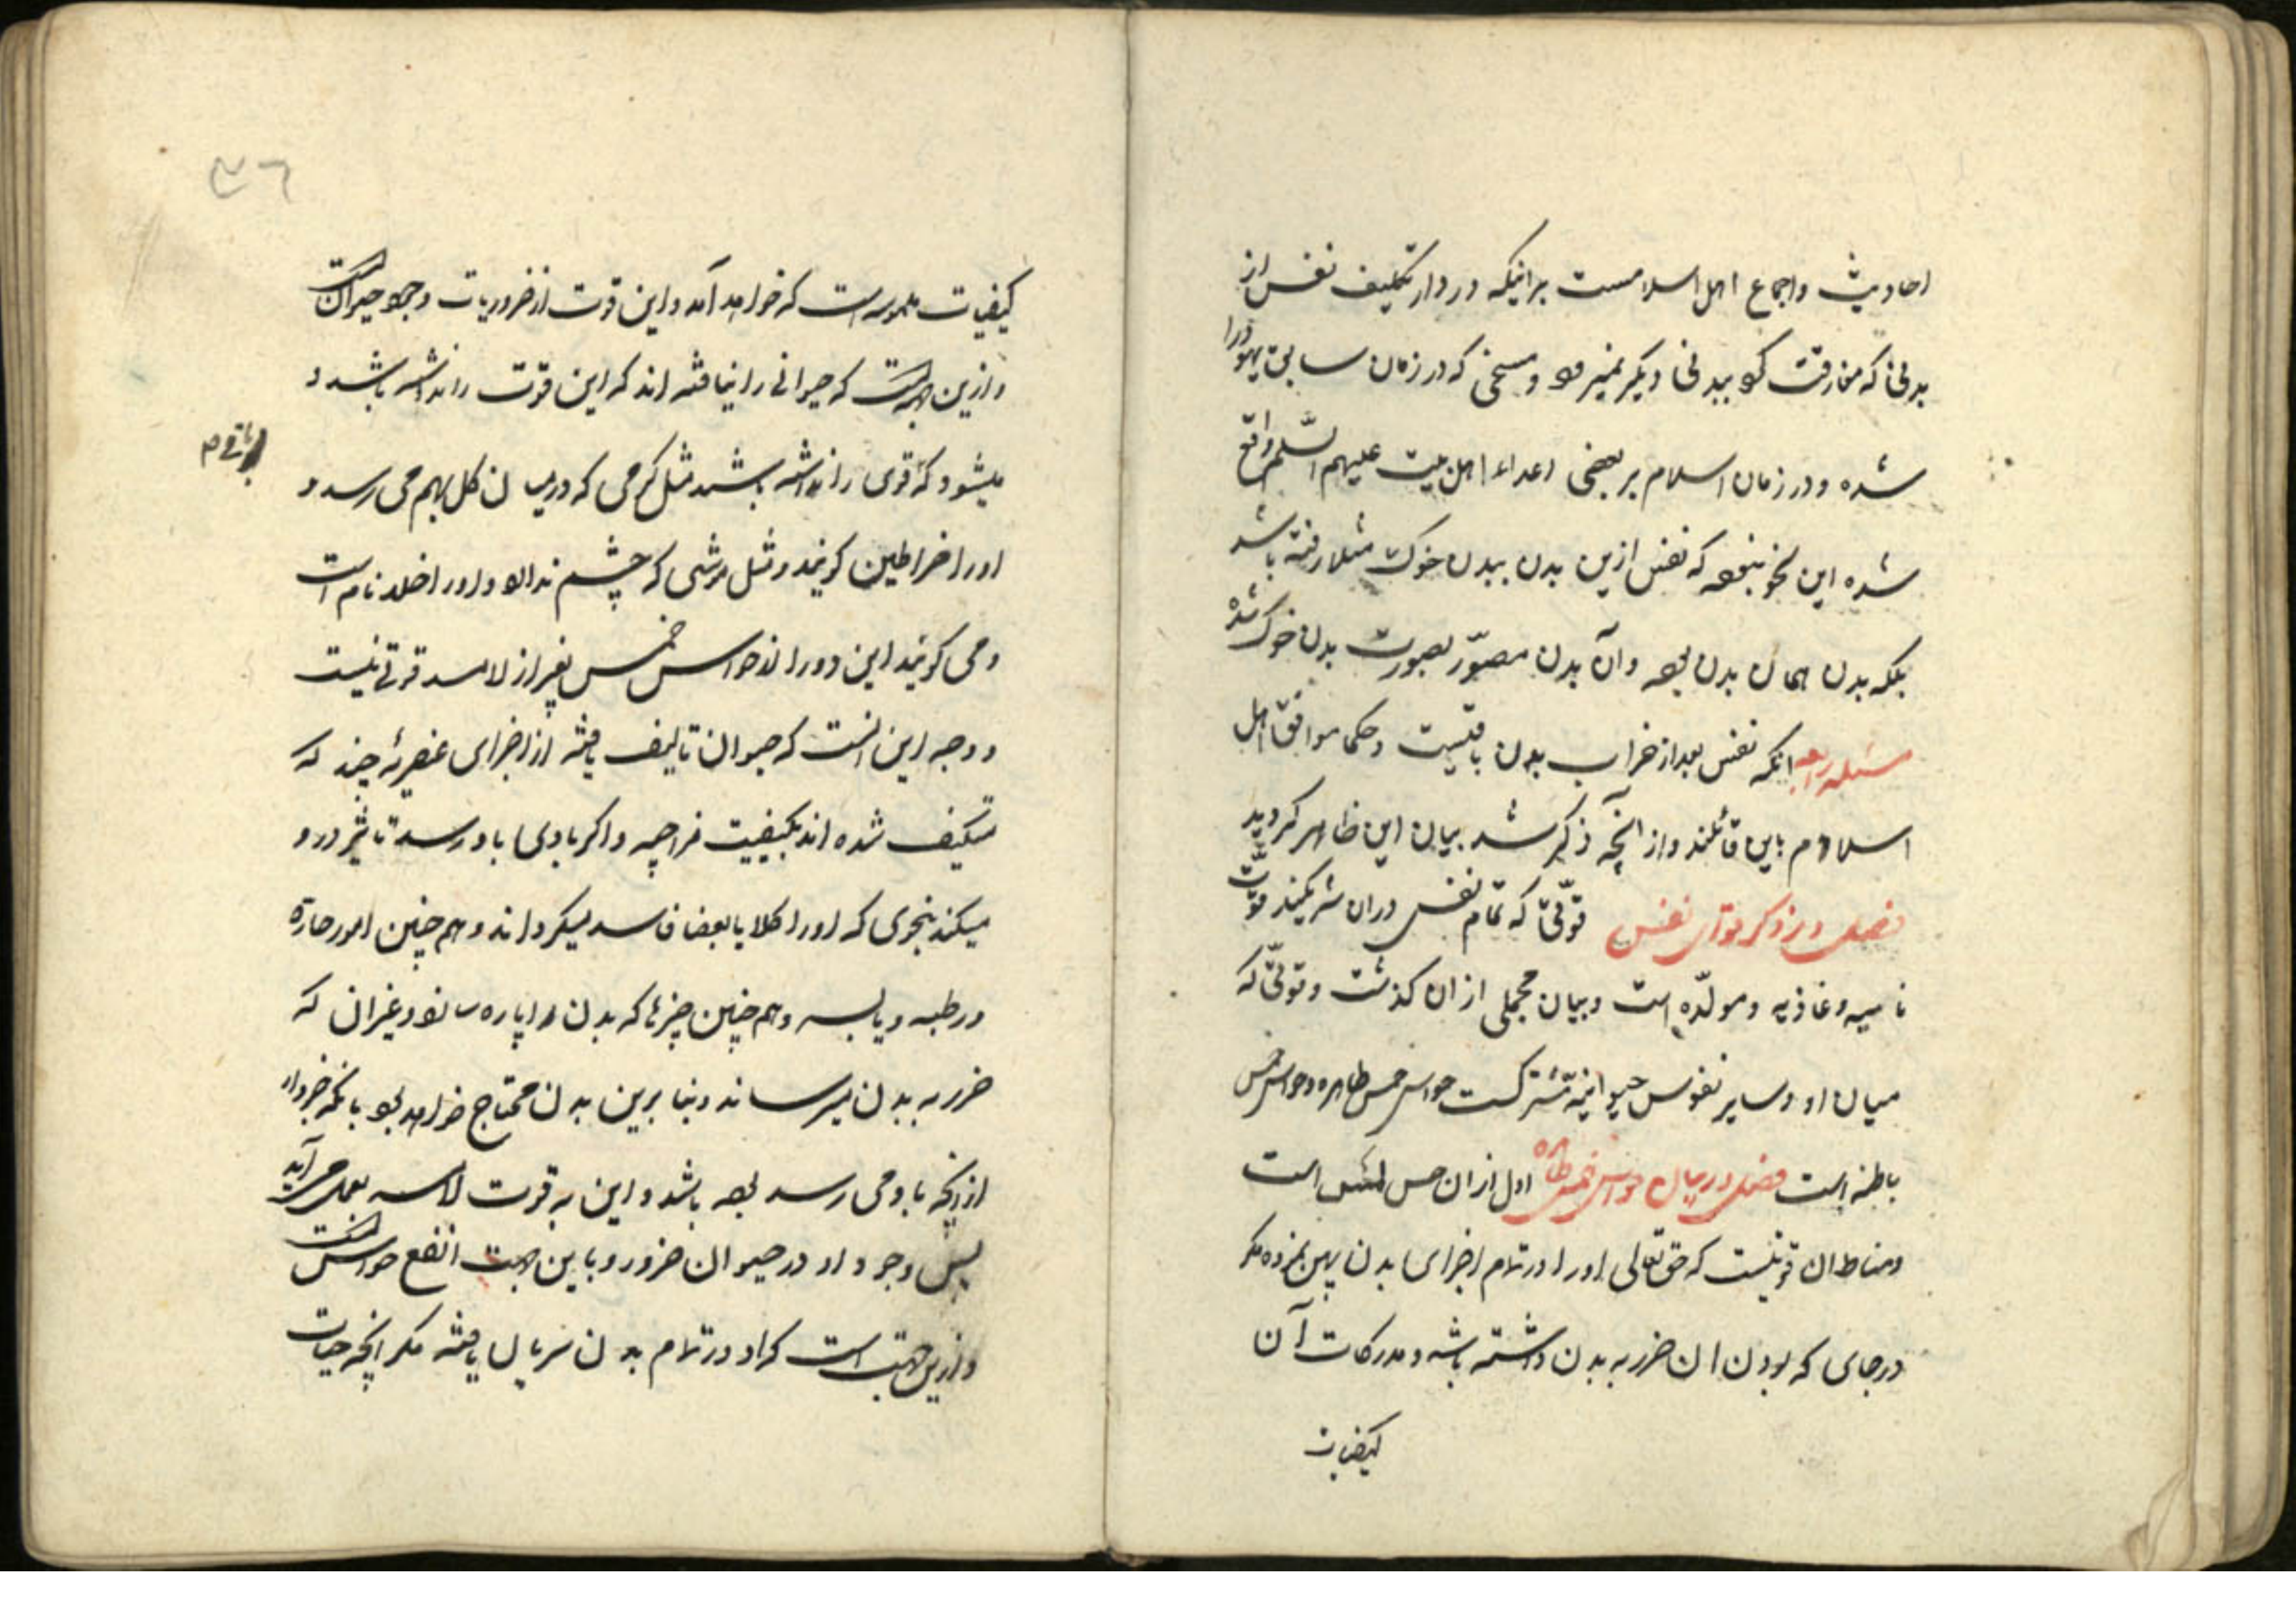 احادیث و اجماع اهل اسلامست برانیکه در دار تکلیف نفس از
بدنی که مفارقت کرد ببدنی دیگر نمیرود و مسخی که در زمان سابق یهود را
شده و در زمان اسلام بر بعضی اعداء اهل بیت علیهم السّلم واقع
شده این نحو نبوده که نفس ازین بدن ببدن خوک مثلا رفته باشد
بلکه بدن همان بدن بوده وآن بدن مصوّر بصورت بدن خوک شده
مسئله رابعه انکه نفس بعد از خراب بدن باقیست و حکما موافق اهل
اسلام باین قائلند و از آنچه ذکر شد بیان این ظاهر کردید
فصل در ذکر قوای نفس قوّتی که تمام نفس دران شریکند قوّت
نامیه و غاذیه و مولّده است و بیان مجملی ازان کذشت و قوتی که
میان او و سایر نفوس حیوانیه مشترکست حواس خمس ظاهره و حواس خمس
باطنه است فصل در بیان حواس خمس ظاهره اول ازان حس لمس است
ومناط ان قوتیست که حق تعالی اورا در تمام اجزای بدن پهن نموده مکر
در جای که بودن ان ضرر به بدن داشته باشد و مدرکات آن
کیفیات
۳۶
کیفیات ملموسه است که خواهد آمد و این قوت از ضروریات وجود حیوانست
و ازین جهتست که حیوانی را نیافته اند که این قوّت را نداشته باشد و
میشود که قوی را نداشته باشد مثل کرمی که در میان کل بهم می رسد و
باقی
اورا خراطین کویند و مثل موشی که چشم ندارد و اورا خلد نام است
و می کویند این دو را از حواس خمس بغیر از لامسه قوتی نیست
و وجه این انست که حیوان تالیف یافته از اجزای عنصریه چند که
متکیف شده اند بکیفیت مزاجیه و اکر بادی باو رسد تاثیر درو
میکند بنحوی که اورا کلا یا بعضا فاسد میکرداند و هم چنین امور حارّه
و رطبه و یابسه و هم چنین چیزها که بدن را پاره سازد و غیران که
ضرر به بدن میرساند و بنا برین بدن محتاج خواهد بود بانکه خبردار
از انچه باو می رسد بوده باشد و این به قوت لامسه بعمل می آید
پس وجود او در حیوان ضرور و باین جهت انفع حواسست
و ازین جهت است که او در تمام بدن سریان یافته مکر انچه حیات